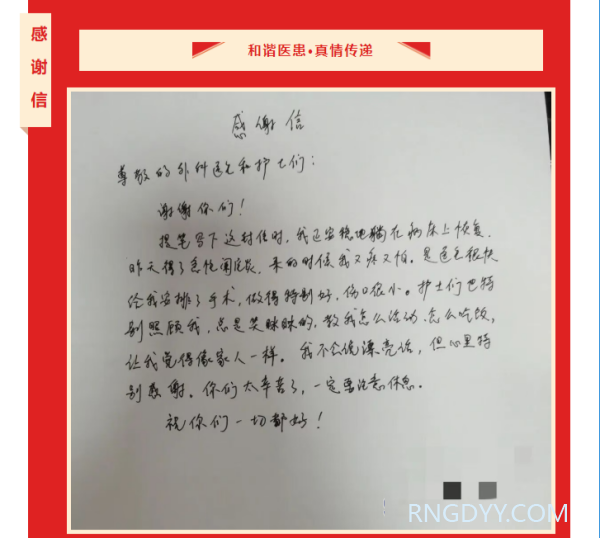 感谢信
和谐医患•真情传递
感谢信
尊敬的外科医生和护士们：
谢谢你们！
提笔写下这封信时，我正安稳地躺在病床上恢复。
昨天得了急性阑尾炎，来的时候我又疼又怕。是医生很快
给我安排了手术，做得特别好，伤口很小。护士们也特
别照顾我，总是笑眯眯的，教我怎么活动、怎么吃饭，
让我觉得像家人一样。我不会说漂亮话，但心里特
别感谢。你们太辛苦了，一定要注意休息。
祝你们一切都好！
RNGDYY.COM